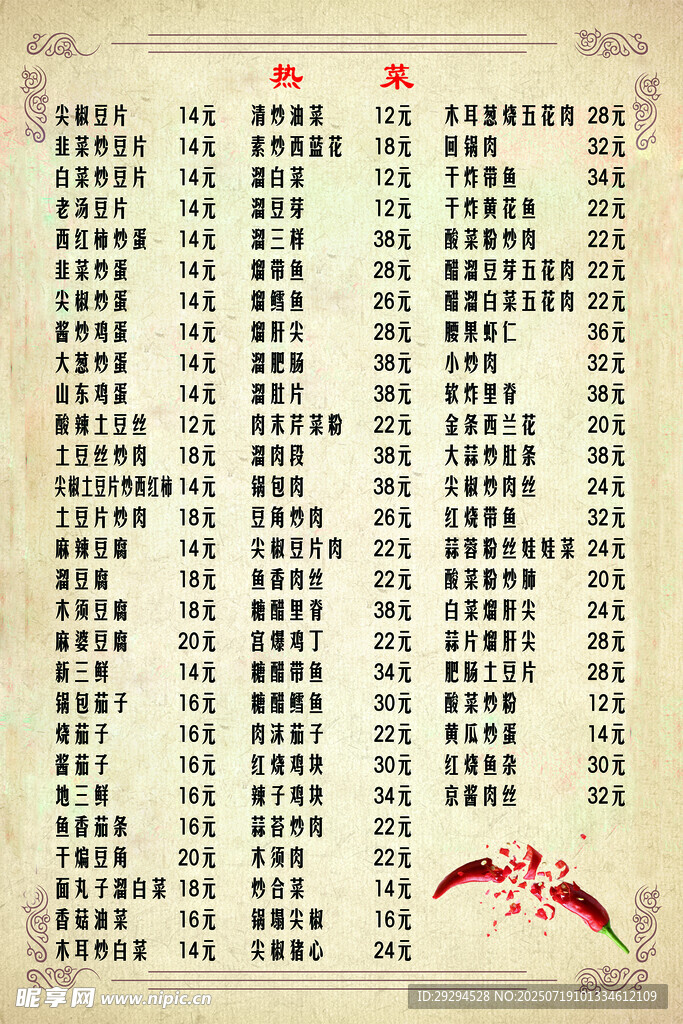 热 菜
尖椒豆片 14元 清炒油菜 12元 木耳葱烧五花肉 28元
韭菜炒豆片 14元 素炒西蓝花 18元 回锅肉 32元
白菜炒豆片 14元 溜白菜 12元 干炸带鱼 34元
老汤豆片 14元 溜豆芽 12元 干炸黄花鱼 22元
西红柿炒蛋 14元 溜三样 38元 酸菜粉炒肉 22元
韭菜炒蛋 14元 熘带鱼 28元 醋溜豆芽五花肉 22元
尖椒炒蛋 14元 熘鳕鱼 26元 醋溜白菜五花肉 22元
酱炒鸡蛋 14元 熘肝尖 28元 腰果虾仁 36元
大葱炒蛋 14元 溜肥肠 38元 小炒肉 32元
山东鸡蛋 14元 溜肚片 38元 软炸里脊 38元
酸辣土豆丝 12元 肉末芹菜粉 22元 金条西兰花 20元
土豆丝炒肉 18元 溜肉段 38元 大蒜炒肚条 38元
尖椒土豆片炒西红柿 14元 锅包肉 38元 尖椒炒肉丝 24元
土豆片炒肉 18元 豆角炒肉 26元 红烧带鱼 32元
麻辣豆腐 14元 尖椒豆片肉 22元 蒜蓉粉丝娃娃菜 24元
溜豆腐 18元 鱼香肉丝 22元 酸菜粉炒肺 20元
木须豆腐 18元 糖醋里脊 38元 白菜熘肝尖 24元
麻婆豆腐 20元 宫爆鸡丁 22元 蒜片熘肝尖 28元
新三鲜 14元 糖醋带鱼 34元 肥肠土豆片 28元
锅包茄子 16元 糖醋鳕鱼 30元 酸菜炒粉 12元
烧茄子 16元 肉沫茄子 22元 黄瓜炒蛋 14元
酱茄子 16元 红烧鸡块 30元 红烧鱼杂 30元
地三鲜 16元 辣子鸡块 34元 京酱肉丝 32元
鱼香茄条 16元 蒜苔炒肉 22元
干煸豆角 20元 木须肉 22元
面丸子溜白菜 18元 炒合菜 14元
香菇油菜 16元 锅塌尖椒 16元
木耳炒白菜 14元 尖椒猪心 24元
昵享网 www.nipic.cn
ID:29294528 NO:20250719101334612109